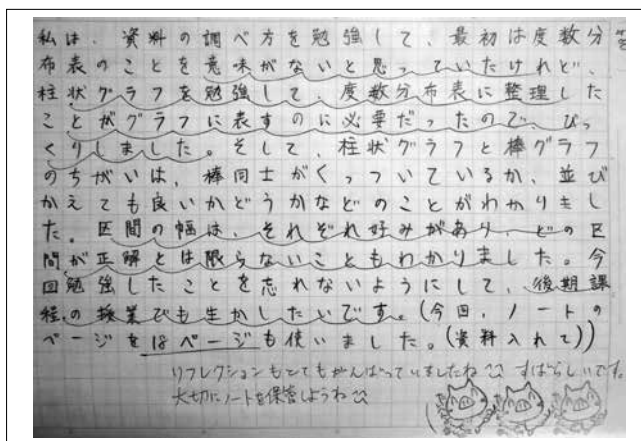 私は、資料の調べ方を勉強して、最初は度数分
布表のことを意味がないと思っていたけれど、
柱状グラフを勉強して、度数分布表に整理した
ことがグラフに表すのに必要だったので、びっ
くりしました。そして、柱状グラフと棒グラフ
のちがいは、棒同士がくっついているか、並び
かえても良いかどうかなどのことがわかりまし
た。区間の幅は、それぞれ好みがあり、どの区
間が正解とは限らないこともわかりました。今
回勉強したことを忘れないようにして、後期課
程の授業でも生かしたいです。(今回、ノートの
ページを18ページも使いました。(資料入れて))
リフレクションもとてもがんばっていましたね すばらしいです。
大切にノートを保管しようね